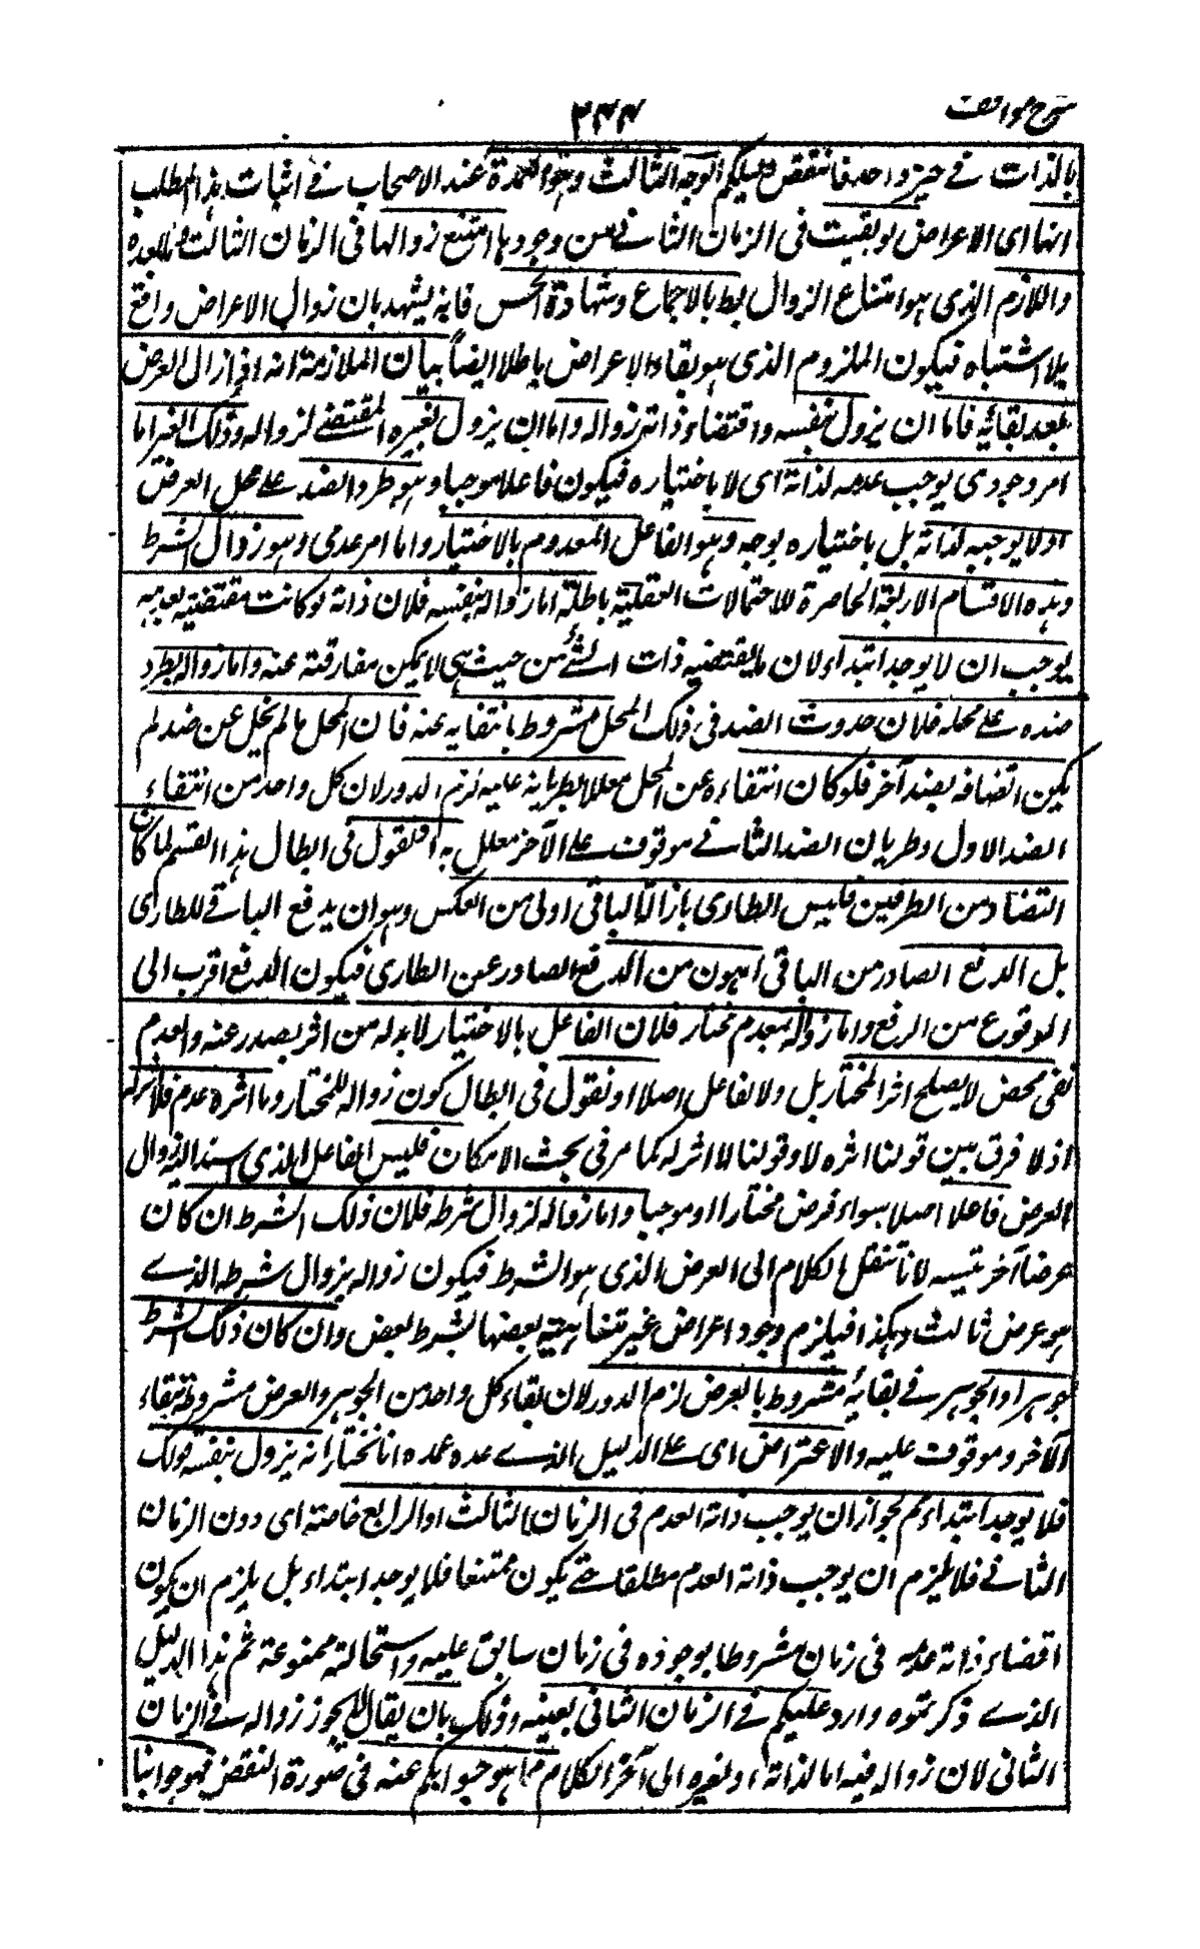 شرح مواقف
۲۴۴
بالذات فى حيز واحد فانتقض دليلكم الوجه الثالث وهو العمدة عند الاصحاب فى اثبات هذا المطلب
انها اى الاعراض لو بقيت فى الزمان الثانى من وجودها امتنع زوالها فى الزمان الثالث وما بعده
واللازم الذى هو امتناع الزوال بط بالاجماع وشهادة الحس فانه يشهد بان زوال الاعراض واقع
بلا اشتباه فيكون الملزوم الذى هو بقاء الاعراض باطلا ايضاً بيان الملازمة انه اذا زال العرض
بعد بقائه فاما ان يزول بنفسه واقتضاء ذاته زواله واما ان يزول بغيره المقتضى لزواله وذلك الغير اما
امر وجودى يوجب عدمه لذاته اى لا باختياره فيكون فاعلا موجبا وهو طرو الضد على محل العرض
او لا يوجبه لذاته بل باختياره يوجبه وهو الفاعل المعدوم بالاختيار واما امر عدمى وهو زوال الشرط
وهذه الاقسام الاربعة الحاصرة للاحتمالات العقلية باطلة اما زواله بنفسه فلان ذاته لو كانت مقتضية لعدمه
يوجب ان لا يوجد ابتداء لان ما يقتضيه ذات الشئ من حيث هى لا يمكن مفارقته عنه واما زواله بطرد
ضده على محله فلان حدوث الضد فى ذلك المحل مشروط بانتفايه عنه فان المحل ما لم يخل عن ضد لم
يكين اتصافه بضد آخر فلو كان انتفاءه عن المحل معللا بطريانه عليه لزم الدور لان كل واحد من انتفاء
الضد الاول وطريان الضد الثانى موقوف على الآخر معلل به او نقول فى ابطال هذا القسم لما كان
التضاد من الطرفين فليس الطارى بازالة الباقى اولى من العكس وهو ان يدفع الباقى للطارى
بل الدفع الصادر من الباقى اهون من الدفع الصادر عن الطارى فيكون الدفع اقرب الى
الوقوع من الرفع واما زواله بمعدم مختار فلان الفاعل بالاختيار لابد له من اثر يصدر عنه والعدم
نفى محض لا يصلح اثرا لمختار بل ولا لفاعل اصلا او نقول فى ابطال كون زواله للمختار وما اثره عدم فلا اثر له
اذ لا فرق بين قولنا اثره لا وقولنا لا اثر له كما مر فى بحث الامكان فليس الفاعل الذى اسند اليه زوال
العرض فاعلا اصلا سواء فرض مختارا او موجبا واما زواله لزوال شرطه فلان ذلك الشرط ان كان
عرضا آخر تسلسل لانا ننقل الكلام الى العرض الذى هو الشرط فيكون زواله بزوال شرطه الذى
هو عرض ثالث وهكذا فيلزم وجود اعراض غير متناهية بعضها شرط لبعض وان كان ذلك الشرط
جوهرا والجوهر فى بقايه مشروط بالعرض لزم الدور لان بقاء كل واحد من الجوهر والعرض مشروط ببقاء
الآخر وموقوف عليه والاعتراض اى على الدليل الذى عده عمدة انا نختار انه يزول بنفسه قولك
فلا يوجد ابتداء ثم لجواز ان يوجب ذاته العدم فى الزمان الثالث او الرابع خاصة اى دون الزمان
الثانى فلا يلزم ان يوجب ذاته العدم مطلقا حتى يكون ممتنعا فلا يوجد ابتداء بل يلزم ان يكون
اقتضاء ذاته عدمه فى زمان مشروطا بوجوده فى زمان سابق عليه واستحالته ممنوعة ثم هذا الدليل
الذى ذكرتموه وارد عليكم فى الزمان الثانى بعينه وذلك بان يقال لا يجوز زواله فى الزمان
الثانى لان زواله فيه اما لذاته او لغيره الى آخر الكلام فما هو جوابكم عنه فى صورة النقض فهو جوابنا